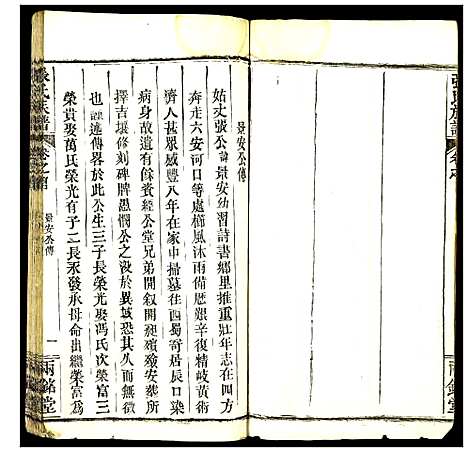 張氏族譜
兩銘堂
景安公傳
姑丈張公諱景安幼習詩書鄉里推重壯年志在四方
奔走六安河口等處櫛風沐雨備歷艱辛復精岐黃術
濟人甚眾咸豐八年在家中掃墓往西蜀寄居辰口染
病身故遺有餘資經公堂兄弟開叙開昶殯殮安葬所
擇吉壤修刻碑牌愚憫公之歿於異域恐其久而湮沒
也謹述傳畧於此公生三子長榮光娶馮氏次榮富三
榮貴娶萬氏榮光有子二長永發承母命出繼榮富為
張氏族譜
景安公傳
一
兩銘堂